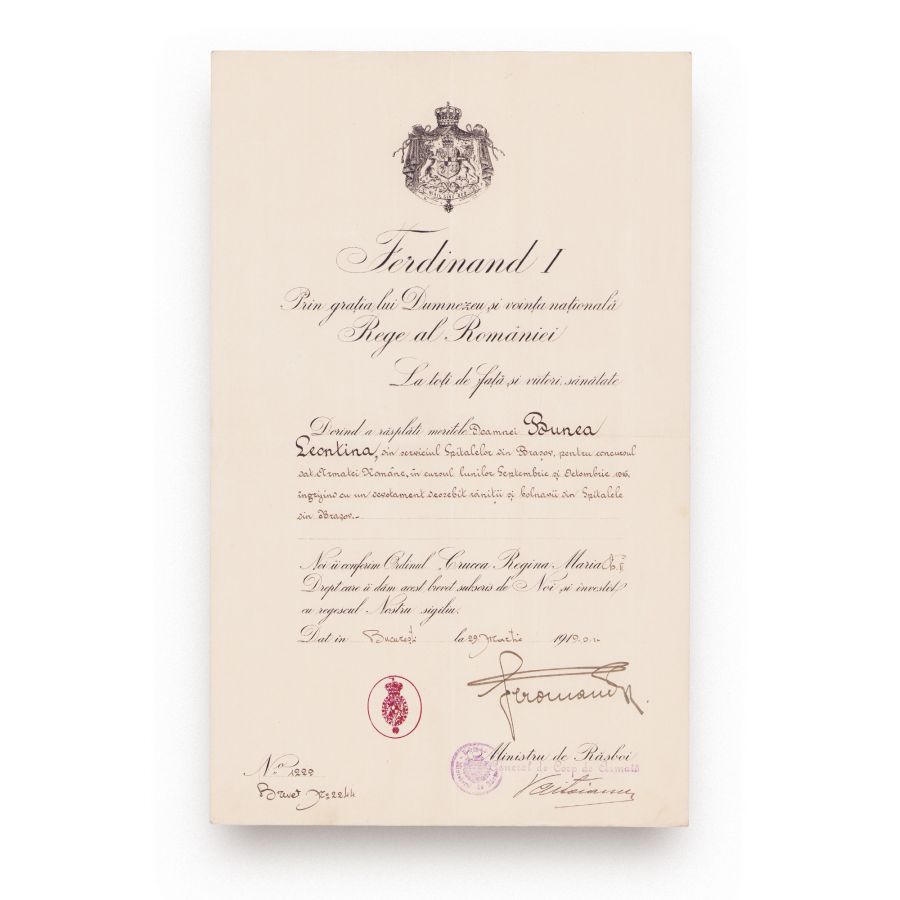 Ferdinand I
Prin grația lui Dumnezeu și voința națională
Rege al României
La toți de față și viitori, sănătate
Dorind a răsplăti meritele Doamnei Bunea
Leontina, din serviciul Spitalelor din Brașov, pentru concursul
dat Armatei Române, în cursul lunilor Septembrie și Octombrie 1916,
îngrijind cu un devotament deosebit răniții și bolnavii din Spitalele
din Brașov.—
Noi îi conferim Ordinul „Crucea Regina Maria
Drept care îi dăm acest brevet subscris de Noi și investit
cu regescul Nostru sigiliu.
Dat în București la 29 Martie 1919
Ferdinand
Ministru de Răsboi
General de Corp de Armată
Văitoianu
No 1222
Brevet No 2244